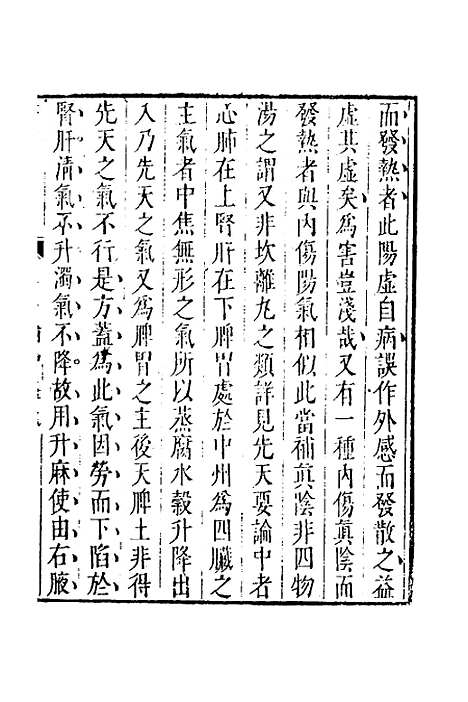 而發熱者此陽虛自病誤作外感而發散之益
虛其虛矣為害豈淺哉又有一種內傷眞陰而
發熱者與內傷陽氣相似此當補眞陰非四物
湯之謂又非坎離丸之類詳見先天要論中者
心肺在上腎肝在下脾胃處於中州為四臟之
主氣者中焦無形之氣所以蒸腐水榖升降出
入乃先天之氣又為脾胃之主後天脾土非得
先天之氣不行是方蓋為此氣因勞而下陷於
腎肝清氣不升濁氣不降故用升麻使由右腋